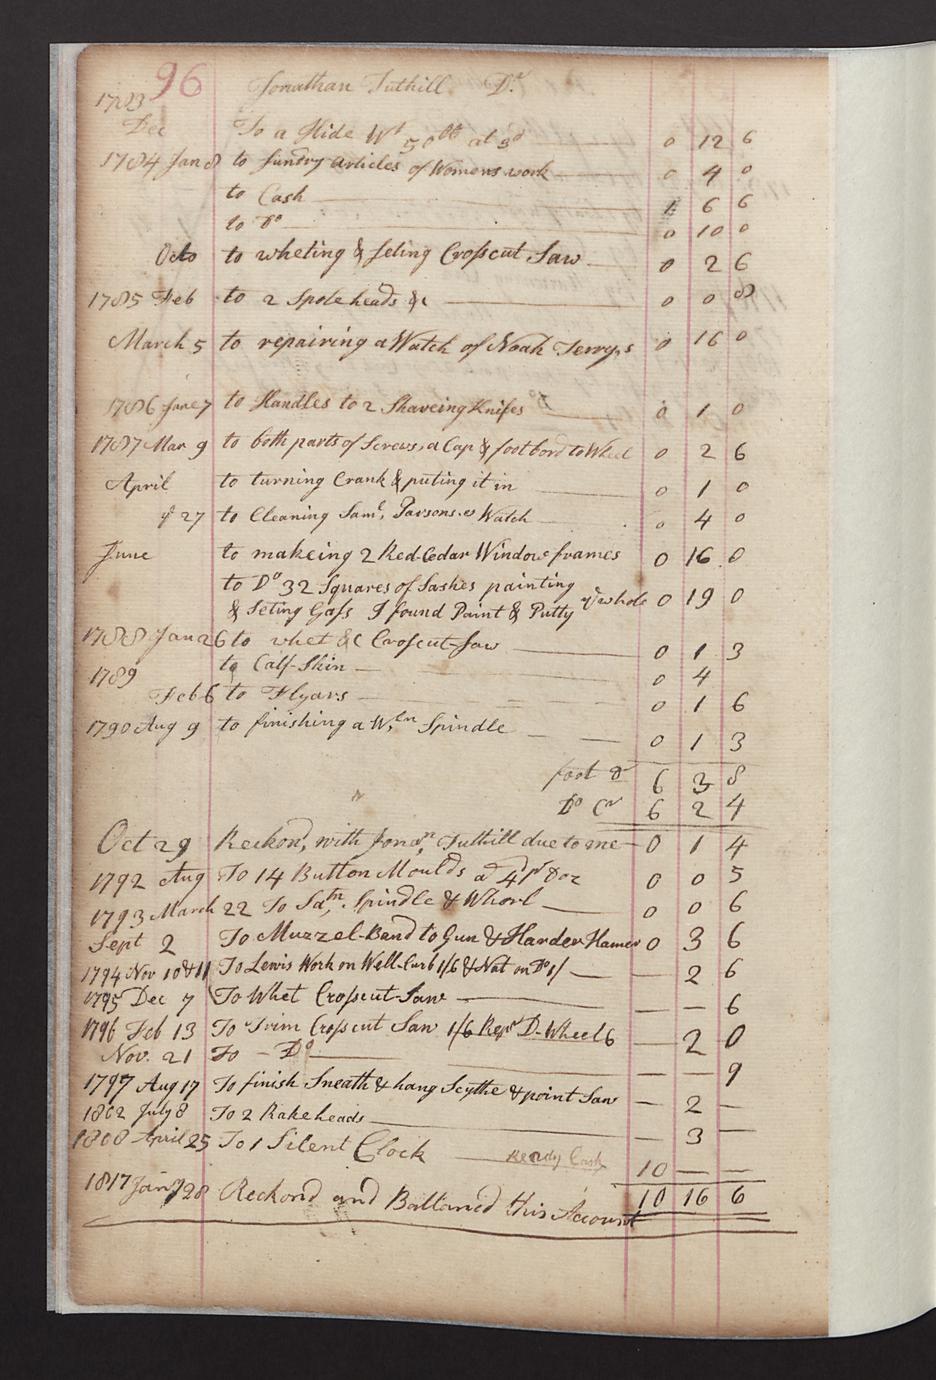 96
1783 Jonathan Tuthill Dr
Dec To a Hide Wt 50 lb at 3d 0 12 6
1784 Jan 8 to sundry articles of Womens work 0 4 0
to Cash 1 6 6
to Do 0 10 0
Octo to wheting & seting Croscut Saw 0 2 6
1785 Feb to 2 Spole heads &c 0 0 8
March 5 to repairing a Watch of Noah Terrys 0 16 0
1786 June 7 to Handles to 2 Shaveing Knifes Do 0 1 0
1787 Mar 9 to both parts of Screws, a Cap & foot bord to Wheel 0 2 6
April to turning Crank & puting it in 0 1 0
ye 27 to Cleaning Saml. Parsons.es Watch 0 4 0
June to makeing 2 Red Cedar Window frames 0 16 0
to Do 32 Squares of Sashes painting
& Seting Glass I found Paint & Putty ye whole 0 19 0
1788 Jan 26 to whet &c Croscut-Saw 0 1 3
1789 to Calf-Skin 0 4
Feb 6 to Flyars 0 1 6
1790 Aug 9 to finishing a W.ln Spindle 0 1 3
foot Dr 6 3 8
Do Cr 6 2 4
Oct 29 Reckond, with Jonan. Tuthill due to me 0 1 4
1792 Aug To 14 Button Moulds a 4d pr Doz 0 0 5
1793 March 22 To Spindle & Whorl 0 0 6
Sept 2 To Muzzel-Band to Gun & Harden Hamer 0 3 6
1794 Nov 10 & 11 To Lewis Work on Well-Curb 1/6 & Nat on Do 1/ — 2 6
1795 Dec 7 To Whet Croscut-Saw — — 6
1796 Feb 13 To Trim Croscut Saw 1/6 Repr D-Wheel 6 — 2 0
Nov. 21 To — Do — — 9
1797 Aug 17 To finish Sneath & hang Scythe & point Saw — 2 —
1802 July 8 To 2 Rakeheads — 3 —
1808 April 25 To 1 Silent Clock Ready Cash 10 — —
1817 Jany 28 Reckond and Ballanced this Account 10 16 6